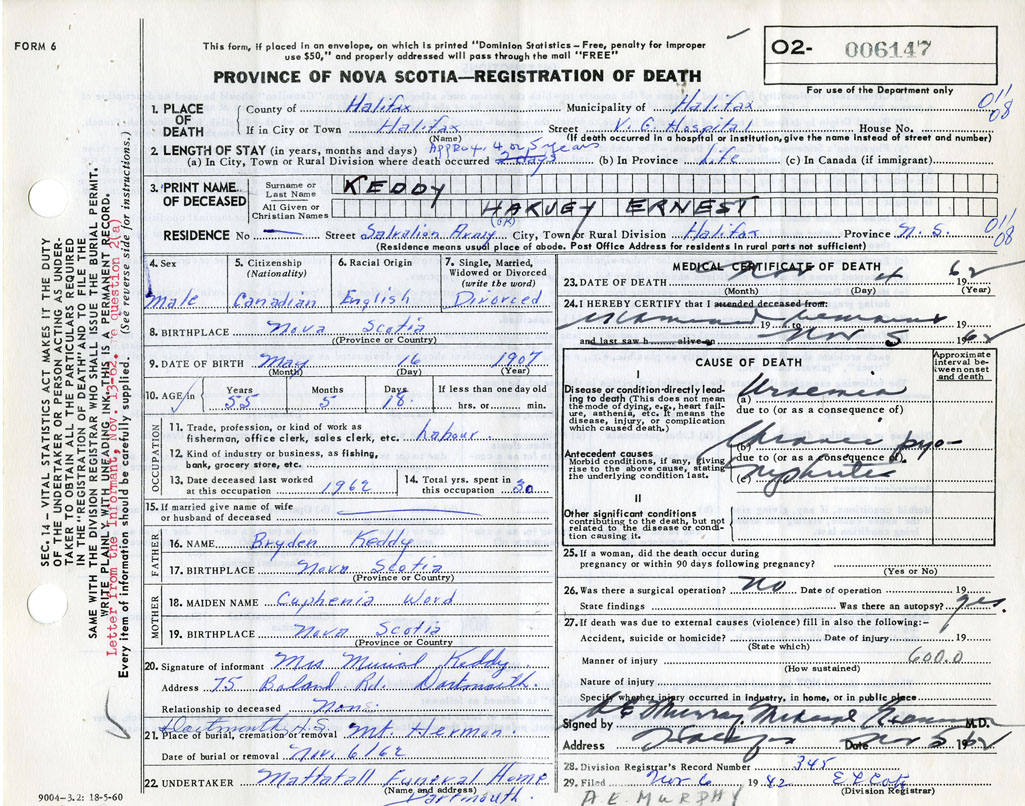 FORM 6
This form, if placed in an envelope, on which is printed "Dominion Statistics – Free, penalty for improper
use $50," and properly addressed will pass through the mail "FREE"
O2- 006147
For use of the Department only
PROVINCE OF NOVA SCOTIA—REGISTRATION OF DEATH
1. PLACE OF DEATH
County of Halifax Municipality of Halifax
If in City or Town Halifax Street V. G. Hospital House No.
(Name) (If death occurred in a hospital or institution, give the name instead of street and number)
011
08
2. LENGTH OF STAY (in years, months and days) Approx. 4 or 5 years
(a) In City, Town or Rural Division where death occurred 2 days (b) In Province Life (c) In Canada (if immigrant)
3. PRINT NAME OF DECEASED
Surname or Last Name KEDDY
All Given or Christian Names HARVEY ERNEST
(OK)
RESIDENCE No — Street City, Town or Rural Division Halifax Province N. S.
011
08
(Residence means usual place of abode. Post Office Address for residents in rural parts not sufficient)
4. Sex Male
5. Citizenship (Nationality) Canadian
6. Racial Origin English
7. Single, Married, Widowed or Divorced (write the word) Divorced
8. BIRTHPLACE Nova Scotia
(Province or Country)
9. DATE OF BIRTH May 16 1907
(Month) (Day) (Year)
10. AGE in Years 55 Months 5 Days 18 If less than one day old hrs. or min.
OCCUPATION
11. Trade, profession, or kind of work as
fisherman, office clerk, sales clerk, etc. labour
12. Kind of industry or business, as fishing,
bank, grocery store, etc.
13. Date deceased last worked
at this occupation 1962
14. Total yrs. spent in
this occupation 30
15. If married give name of wife
or husband of deceased
FATHER
16. NAME Bryden Keddy
17. BIRTHPLACE Nova Scotia
(Province or Country)
MOTHER
18. MAIDEN NAME Euphenia Word
19. BIRTHPLACE Nova Scotia
(Province or Country)
20. Signature of informant Mrs Muriel Keddy
Address 75 Boland Rd. Dartmouth
Relationship to deceased None
Dartmouth N.S.
21. Place of burial, cremation or removal Mt. Hermon
Date of burial or removal Nov. 6/62
22. UNDERTAKER Mattatall Funeral Home
(Name and address)
Dartmouth.
9004–3.2: 18-5-60
MEDICAL CERTIFICATE OF DEATH
23. DATE OF DEATH Nov 4 1962
(Month) (Day) (Year)
24. I HEREBY CERTIFY that I attended deceased from:
examined remains 19 to 19
and last saw h alive on Nov 5 1962
CAUSE OF DEATH
Approximate interval between onset and death
I
Disease or condition directly leading to death (This does not mean the mode of dying, e.g., heart failure, asthenia, etc. It means the disease, injury, or complication which caused death.)
(a) Uraemia
due to (or as a consequence of)
Antecedent causes
Morbid conditions, if any, giving rise to the above cause, stating the underlying condition last.
(b) Chronic pyo-
due to (or as a consequence of)
(c) nephritis
II
Other significant conditions
contributing to the death, but not related to the disease or condition causing it.
25. If a woman, did the death occur during
pregnancy or within 90 days following pregnancy?
(Yes or No)
26. Was there a surgical operation? No Date of operation 19
State findings Was there an autopsy? yes.
27. If death was due to external causes (violence) fill in also the following:-
Accident, suicide or homicide? Date of injury 19
(State which)
Manner of injury 600.0
(How sustained)
Nature of injury
Specify whether injury occurred in industry, in home, or in public place
Signed by Murray Medical Examiner M.D.
Address Halifax Date Nov 5 1962
28. Division Registrar's Record Number 345
29. Filed Nov 6 1962
(Division Registrar)
A. E. MURPHY
SEC. 14 — VITAL STATISTICS ACT MAKES IT THE DUTY
OF THE UNDERTAKER OR PERSON ACTING AS UNDER-
TAKER TO OBTAIN ALL THE PARTICULARS REQUIRED
IN THE "REGISTRATION OF DEATH" AND TO FILE THE
SAME WITH THE DIVISION REGISTRAR WHO SHALL ISSUE THE BURIAL PERMIT.
WRITE PLAINLY WITH UNFADING INK—THIS IS A PERMANENT RECORD.
Letter from the Informant, Nov. 13-62. re question 2(a)
Every item of information should be carefully supplied. (See reverse side for instructions.)